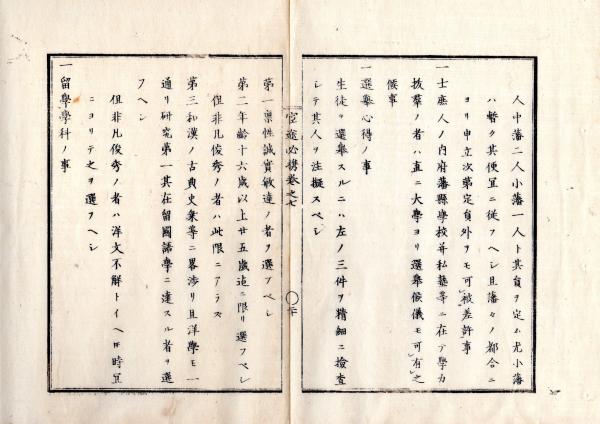 人中藩二人小藩一人ト其員ヲ定ム尤小藩
ハ暫ク其便宜ニ従フヘシ且藩々ノ都合ニ
ヨリ申立次第定員外ヲモ可被差許事
一士庶人ノ内府藩縣學校并私塾等ニ在テ學力
拔羣ノ者ハ直ニ大學ヨリ選擧候儀モ可有之
候事
一選擧心得ノ事
生徒ヲ選擧スルニハ左ノ三件ヲ精細ニ撿査
シテ其人ヲ注擬スベシ
官途必携卷之七
第一稟性誠實敏達ノ者ヲ選フベシ
第二年齡十六歲以上廿五歲迄ニ限リ選フベシ
但非凡俊秀ノ者ハ此限ニアラズ
第三和漢ノ古典史乘等ニ畧渉リ且洋學モ一
通リ研究第一其在留國語學ニ達スル者ヲ選
フヘシ
但非凡俊秀ノ者ハ洋文不解トイヘ𪜈時宜
ニヨリテ之ヲ選フヘシ
一留學學科ノ事